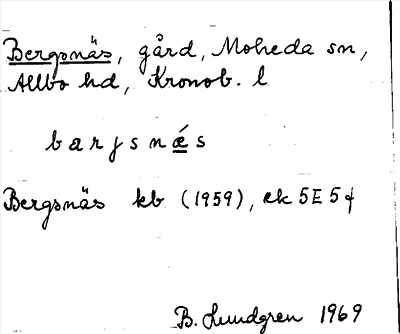 Bergsnäs, gård, Moheda sn,
Allbo hd, Kronob. l
barjsnǽs
Bergsnäs kb (1959), ek 5E5f
B. Lundgren 1969